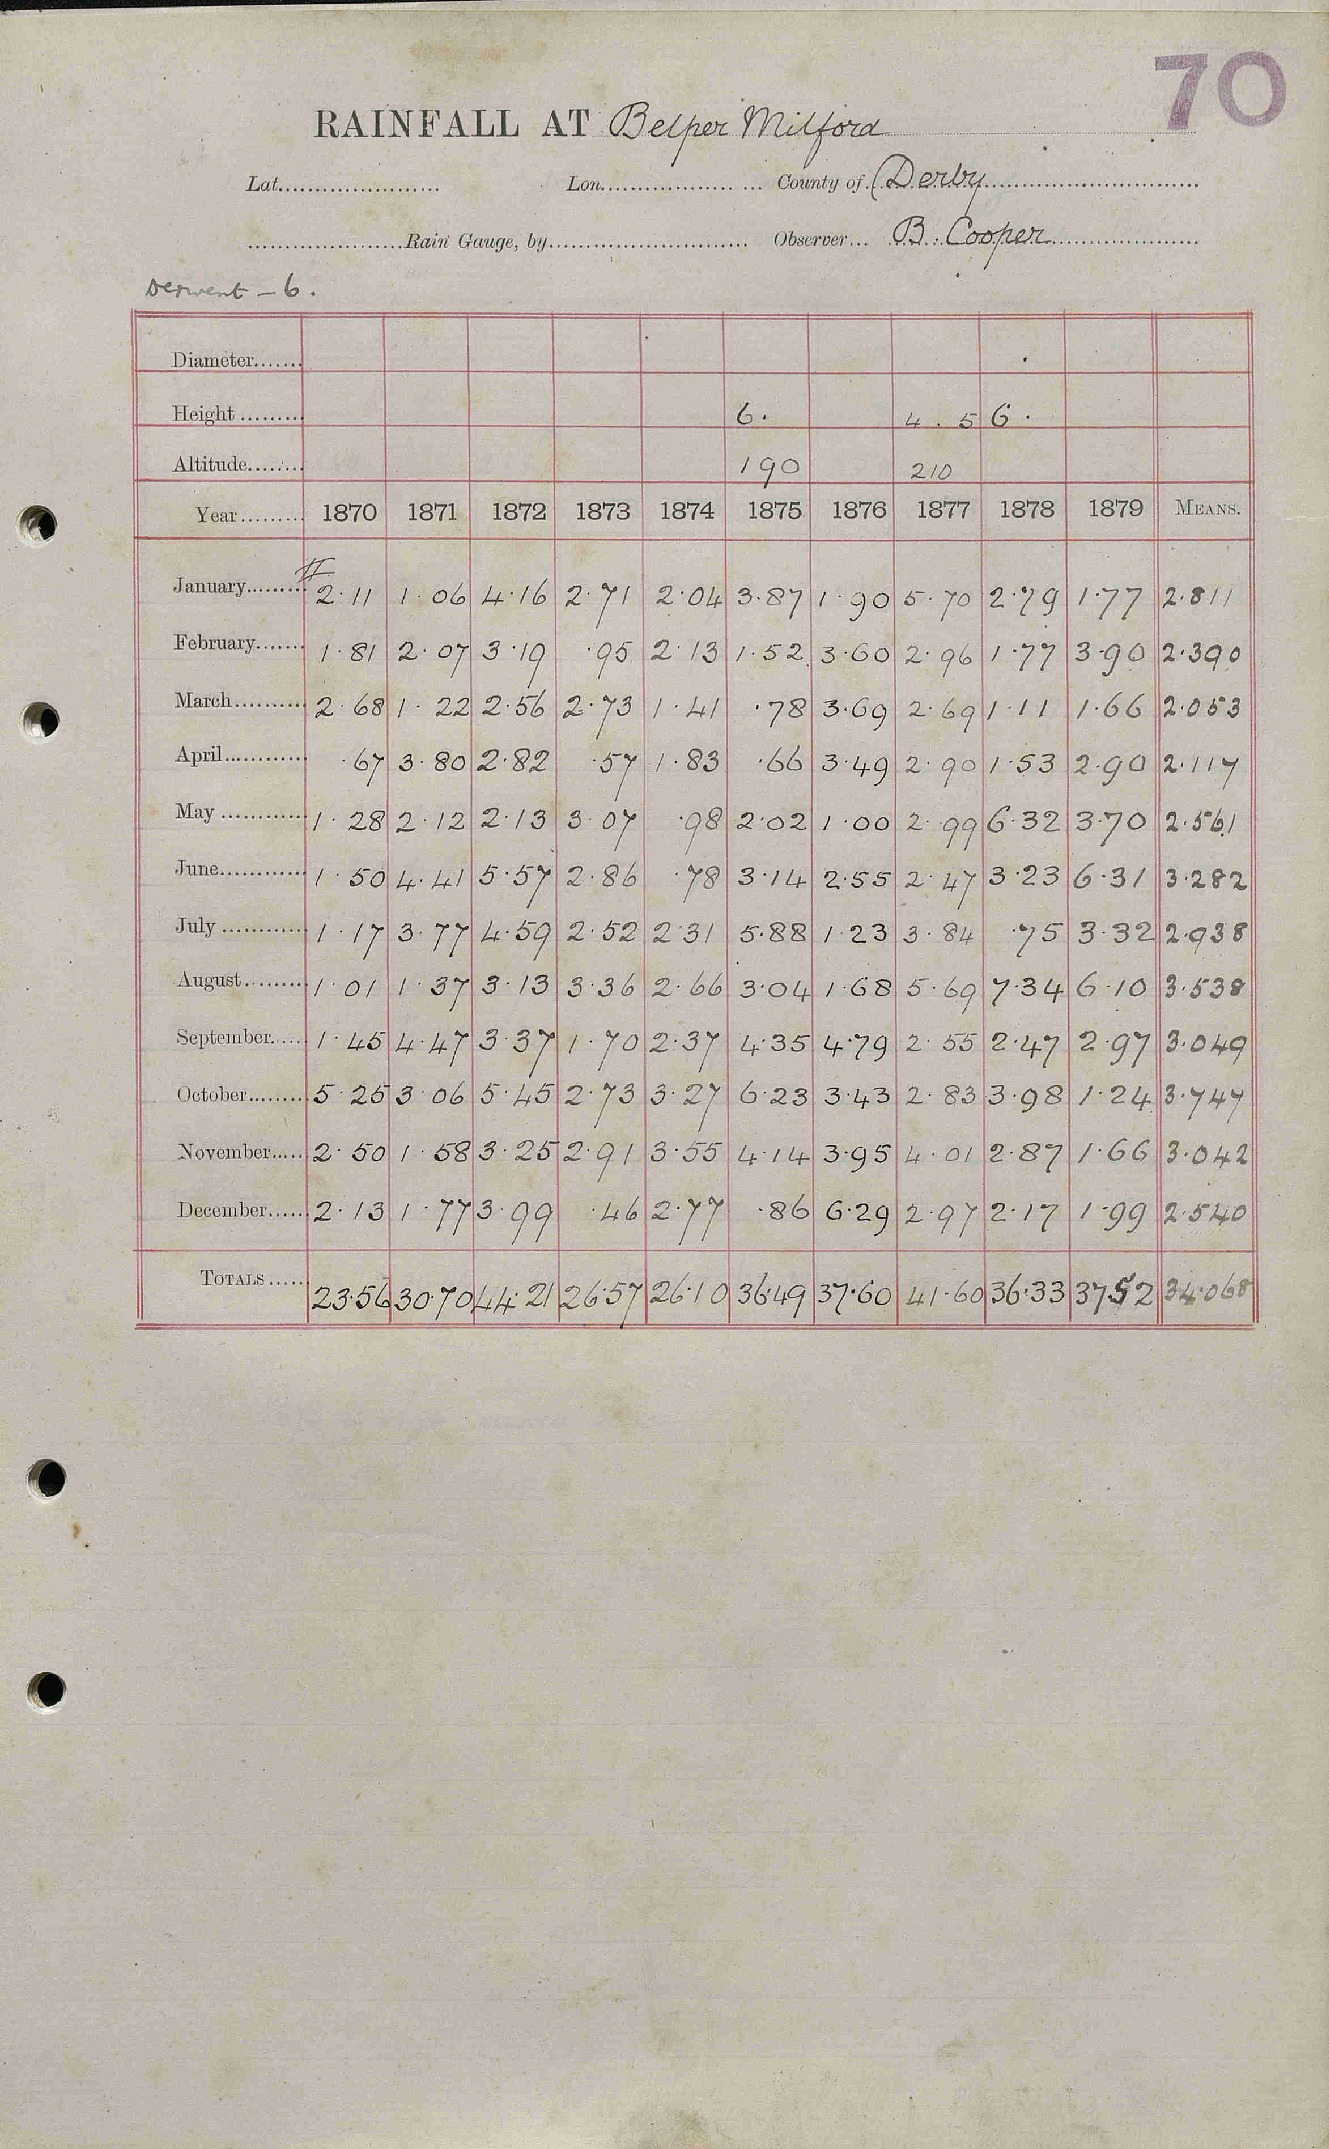 70
RAINFALL AT Belper Milford
Lat. Lon. County of Derby
Rain Gauge, by Observer B. Cooper
Derwent – 6.
Diameter
Height 6. 4. 5 6.
Altitude 190 210
Year 1870 1871 1872 1873 1874 1875 1876 1877 1878 1879 MEANS.
January # 2.11 1.06 4.16 2.71 2.04 3.87 1.90 5.70 2.79 1.77 2.811
February 1.81 2.07 3.19 .95 2.13 1.52 3.60 2.96 1.77 3.90 2.390
March 2.68 1.22 2.56 2.73 1.41 .78 3.69 2.69 1.11 1.66 2.053
April .67 3.80 2.82 .57 1.83 .66 3.49 2.90 1.53 2.90 2.117
May 1.28 2.12 2.13 3.07 .98 2.02 1.00 2.99 6.32 3.70 2.561
June 1.50 4.41 5.57 2.86 .78 3.14 2.55 2.47 3.23 6.31 3.282
July 1.17 3.77 4.59 2.52 2.31 5.88 1.23 3.84 .75 3.32 2.938
August 1.01 1.37 3.13 3.36 2.66 3.04 1.68 5.69 7.34 6.10 3.538
September 1.45 4.47 3.37 1.70 2.37 4.35 4.79 2.55 2.47 2.97 3.049
October 5.25 3.06 5.45 2.73 3.27 6.23 3.43 2.83 3.98 1.24 3.747
November 2.50 1.58 3.25 2.91 3.55 4.14 3.95 4.01 2.87 1.66 3.042
December 2.13 1.77 3.99 .46 2.77 .86 6.29 2.97 2.17 1.99 2.540
TOTALS 23.56 30.70 44.21 26.57 26.10 36.49 37.60 41.60 36.33 37.52 34.068